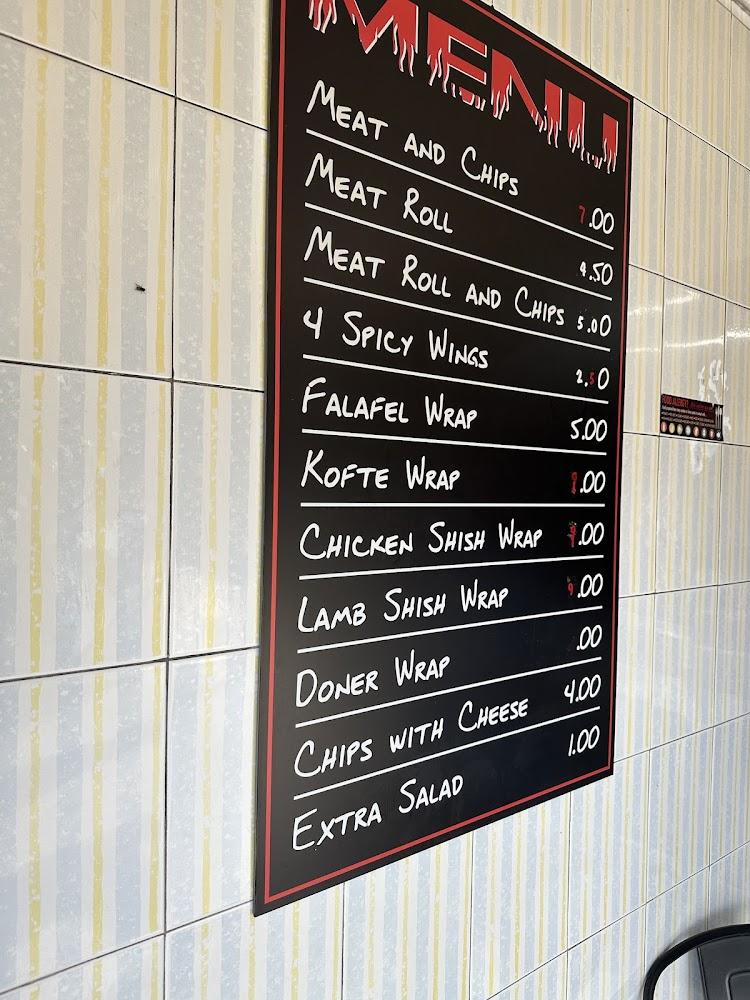 MENU
MEAT AND CHIPS 7.00
MEAT ROLL 4.50
MEAT ROLL AND CHIPS 5.00
4 SPICY WINGS 2.50
FALAFEL WRAP 5.00
KOFTE WRAP .00
CHICKEN SHISH WRAP .00
LAMB SHISH WRAP 9.00
DONER WRAP .00
CHIPS WITH CHEESE 4.00
EXTRA SALAD 1.00